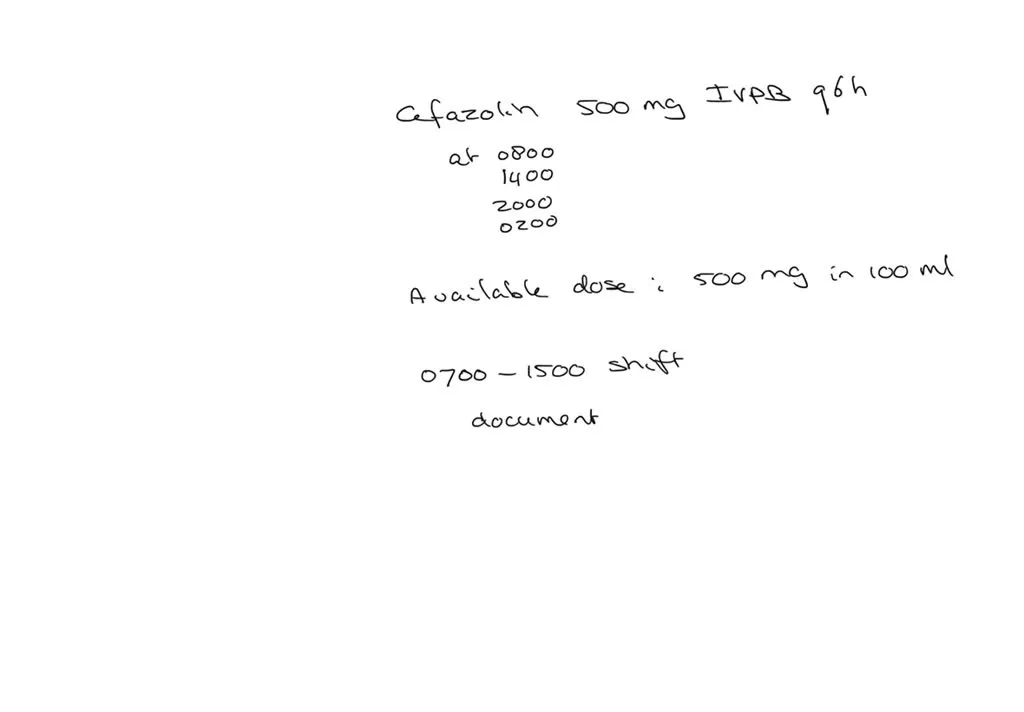 Cefazolin 500 mg IVPB q6h
at 0800
1400
2000
0200
Available dose : 500 mg in 100 ml
0700 – 1500 shift
document